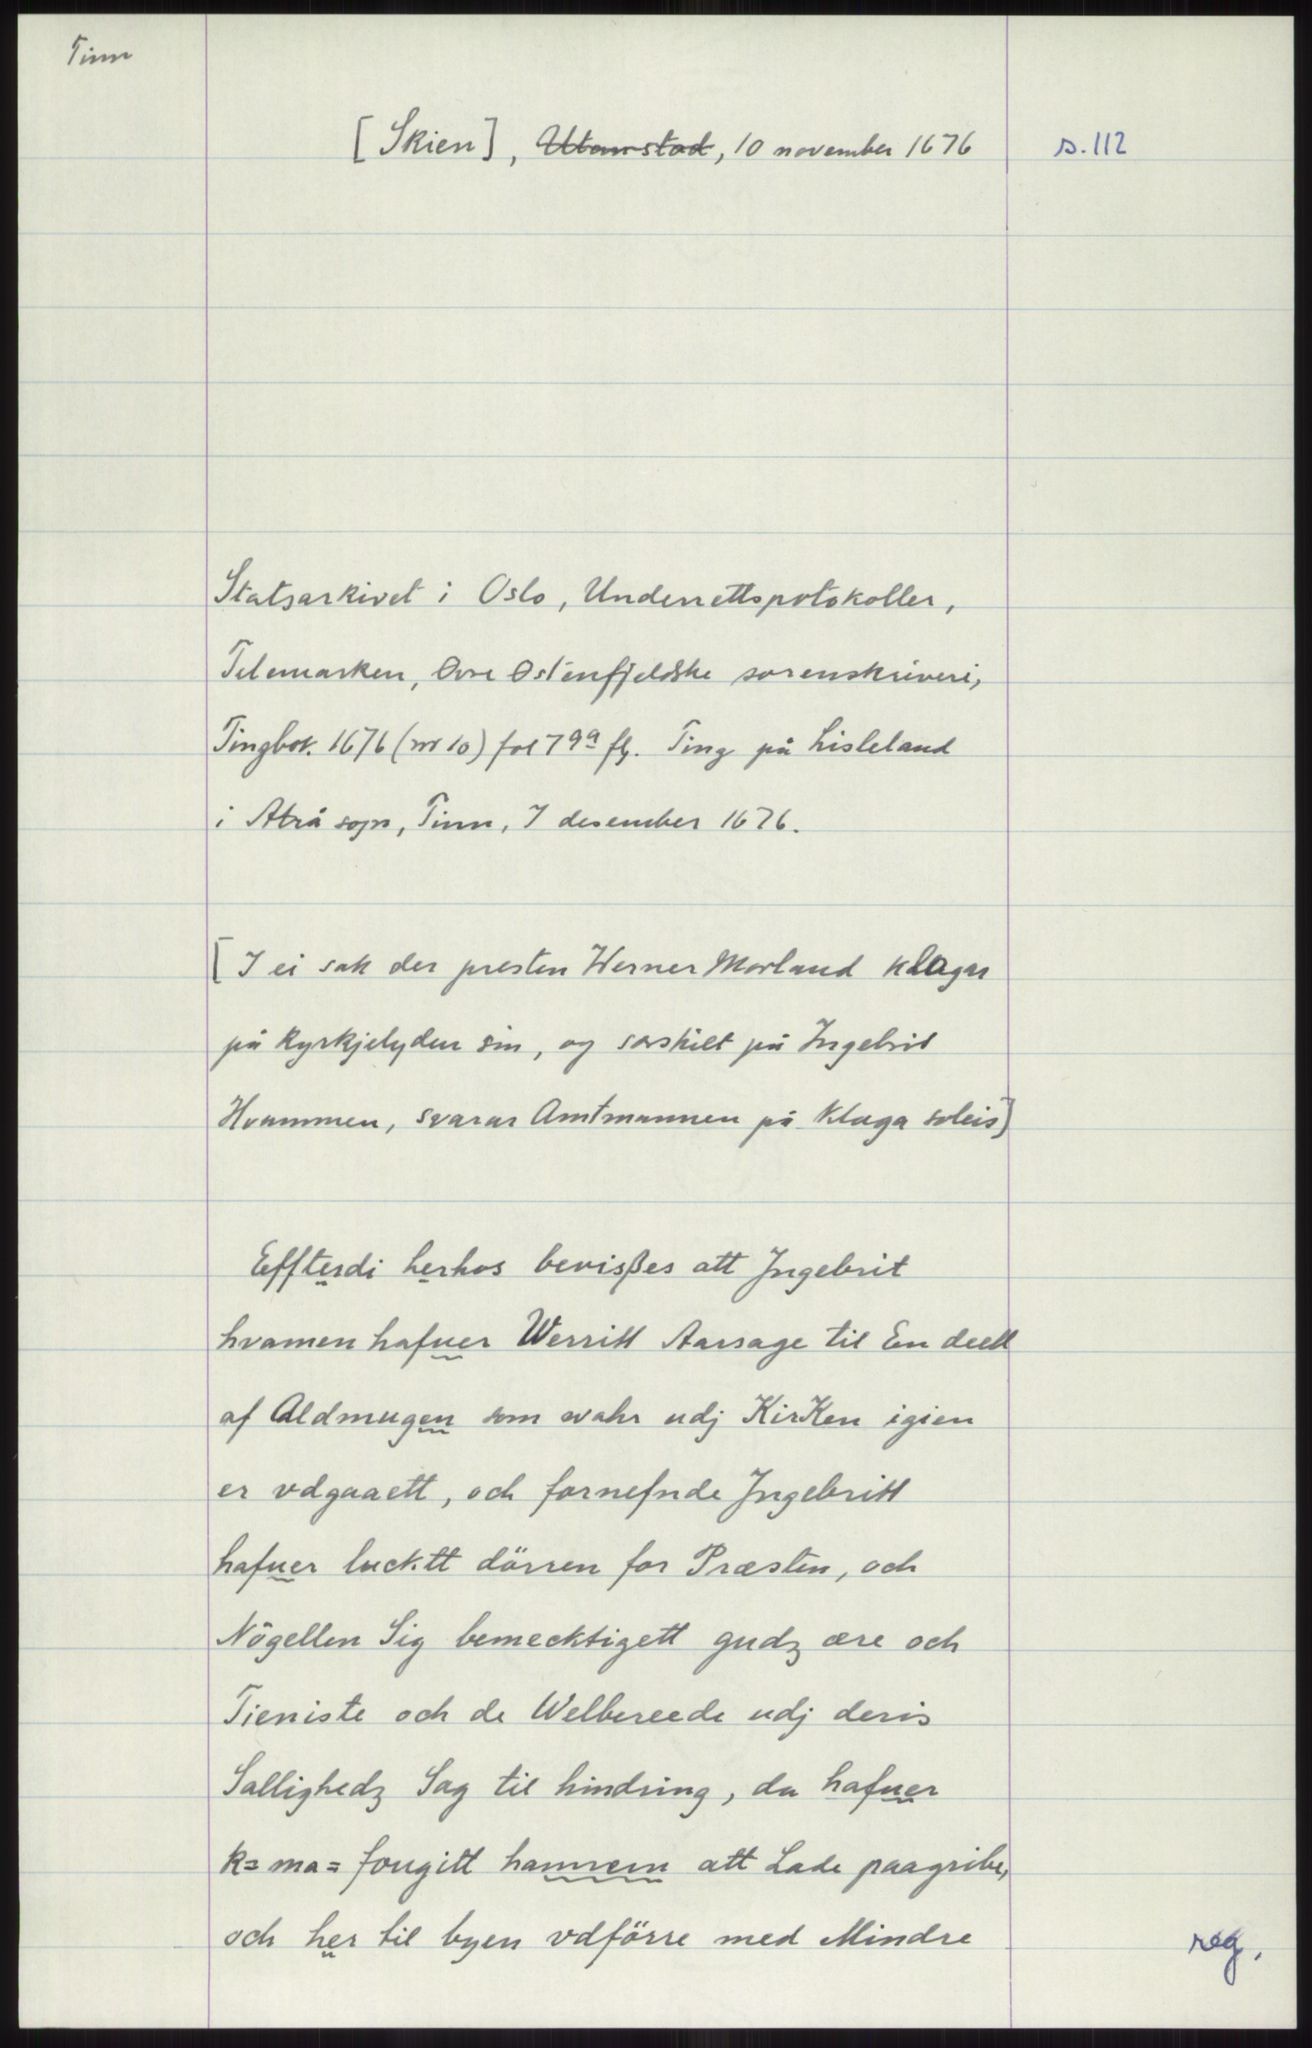 Tinn
[Skien], Utan stad, 10 november 1676
s. 112
Statsarkivet i Oslo, Underrettsprotokoller,
Telemarken, Øvre Østenfjeldske sorenskriveri,
Tingbok 1676 (nr 10) fol 79a flg. Ting på Lisleland
i Atrå sogn, Tinn, 7 desember 1676.
[I ei sak der presten Werner Morland klagar
på kyrkjelyden sin, og særskilt på Ingebrit
Hvammen, svarar Amtmannen på klaga soleis]
Effterdi herhos bevisßes att Jngebrit
hvamen hafuer Werritt Aarsage til En deell
af Aldmugen som wahr udj KirKen igien
er vdgaaett, och fornefnde Jngebritt
hafuer lucktt dörren for Præsten, och
Nögellen Sig bemecktigett gudz ære och
Tieniste och de Welbereede udj deris
Sallighedz Sag til hindring, da hafuer
k= ma= fougitt hannem att Lade paagribe,
och her til byen vdförre med Mindre
reg.